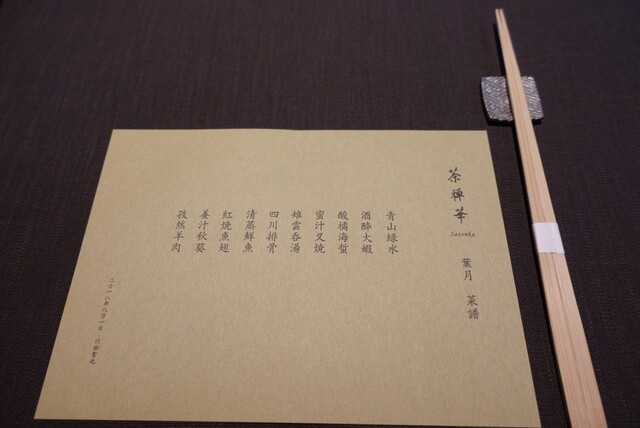 茶禅華
Sazenka
葉月 菜譜
青山緑水
酒酔大蝦
酸橘海蜇
蜜汁叉焼
雉雲呑湯
四川排骨
清蒸鮮魚
紅焼魚翅
姜汁秋葵
孜然羊肉
二〇一八年八月一日 川田智也